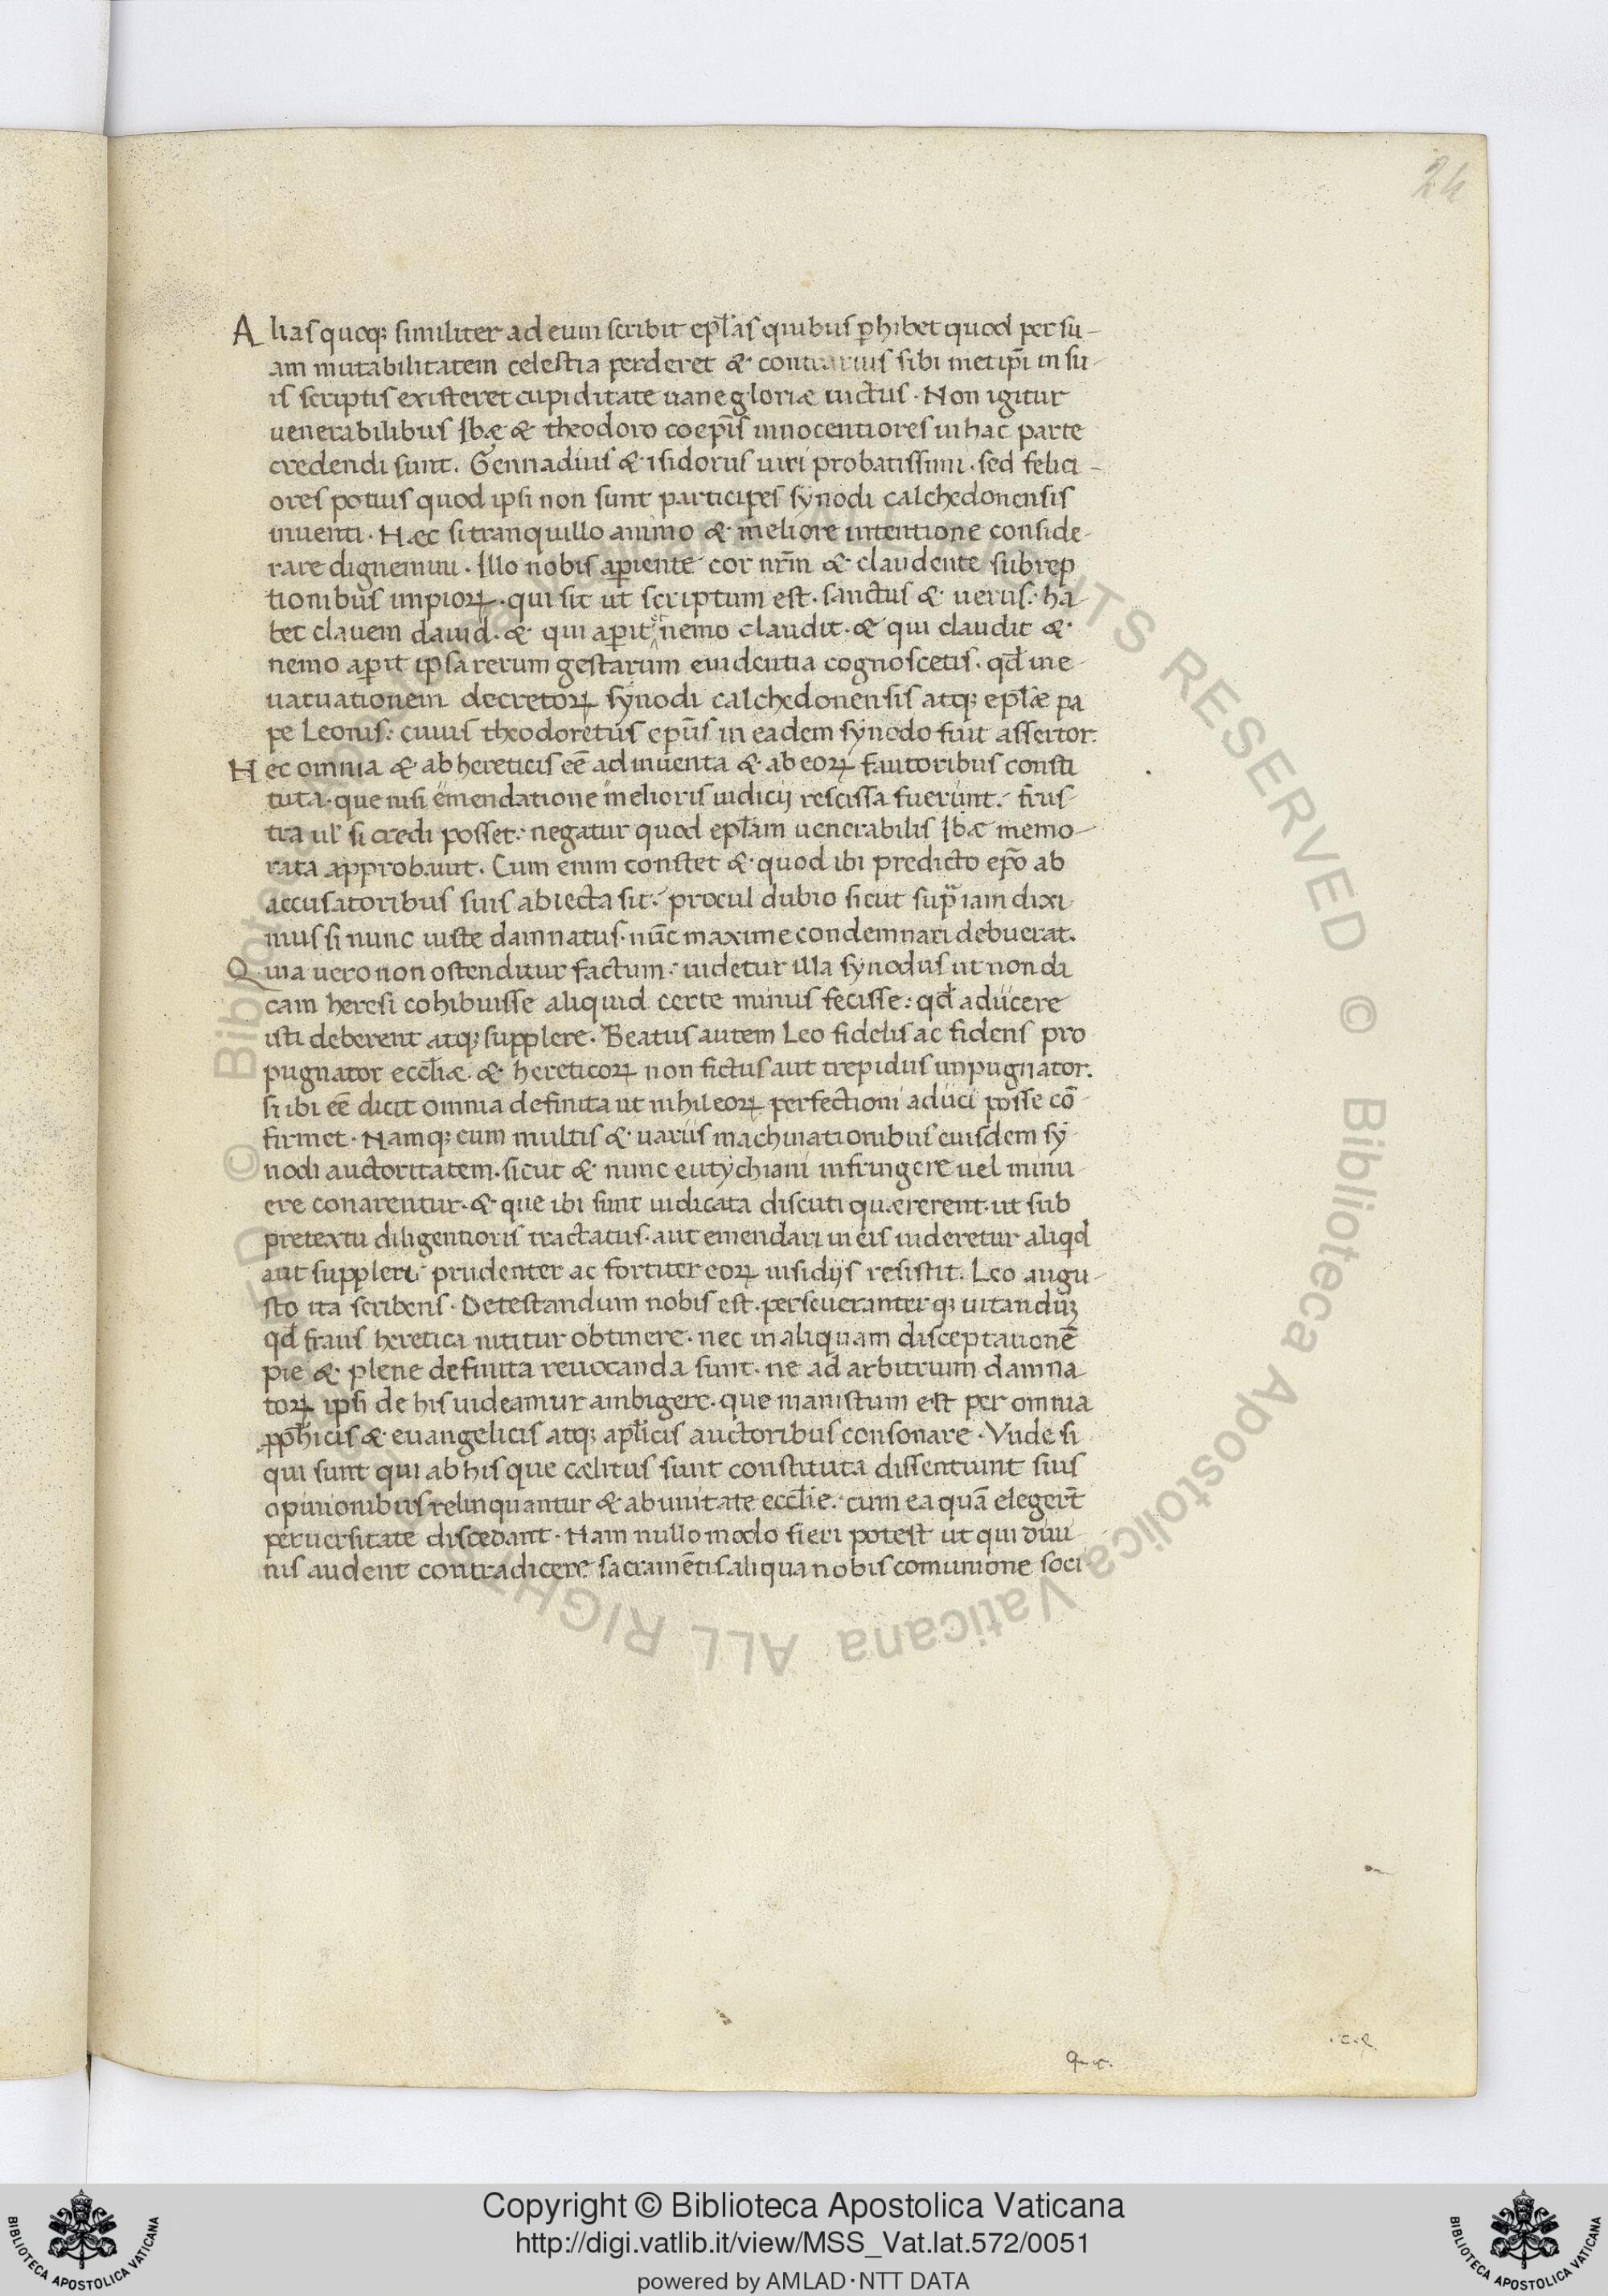 24
Alias quoq; similiter ad eum scribit epl̄as quibus ꝑhibet quod per su-
am mutabilitatem celestia perderet & contrarius sibi metip̄i in su-
is scriptis existeret cupiditate uane gloriæ uictus. Non igitur
uenerabilibus Ibæ & theodoro coep̄is innocentiores in hac parte
credendi sunt. Gennadius & isidorus uiri probatissimi. sed felici-
ores potius quod ipsi non sunt participes synodi calchedonensis
inuenti. Hæc si tranquillo animo & meliore intentione conside-
rare dignemini. Illo nobis aꝑiente cor nr̄m & claudente subrep
tionibus impioꝝ. qui sit ut scriptum est. sanctus & uerus: ha-
bet clauem dauid. & qui aꝑit & nemo claudit. & qui claudit &
nemo aꝑit ipsa rerum gestarum euidentia cognoscetis. qd̄ ine-
uacuationem decretoꝝ synodi calchedonensis atq; epl̄æ pa
pe Leonis: cuius theodoretus ep̄us in eadem synodo fuit assertor.
Hec omnia & ab hereticis eē̄ adinuenta & ab eoꝝ fautoribus consti
tuta. que nisi emendatione melioris iudicij rescissa fuerint. frus-
tra ul̄ si credi posset: negatur quod epl̄am uenerabilis Ibæ memo-
rata approbauit. Cum enim constet & quod ibi predicto ep̄o ab
accusatoribus suis abiecta sit: procul dubio sicut supͣ iam dixi
mus si nunc iuste damnatus. nūc maxime condemnari debuerat.
Quia uero non ostenditur factum: uidetur illa synodus ut non di
cam heresi cohibuisse aliquid certe minus fecisse: qd̄ adiicere
isti deberent atq; supplere. Beatus autem Leo fidelis ac fidens pro
pugnator eccl̄iæ. & hereticoꝝ non fictus aut trepidus impugnator.
si ibi eē̄ dicit omnia definita ut nihil eoꝝ perfectioni adiici posse cō-
firmet. Namq; cum multis & uariis machinationibus eiusdem sy-
nodi auctoritatem. sicut & nunc eutychiani infringere uel minu-
ere conarentur. & que ibi sunt iudicata discuti quererent. ut sub
pretextu diligentioris tractatus. aut emendari in eis uideretur aliqd
aut suppleri: prudenter ac fortiter eoꝝ insidijs resistit. Leo augu-
sto ita scribens. Detestandum nobis est. perseueranterq; uitandūꝫ
qd̄ fraus heretica nititur obtinere. nec in aliquam disceptationē
pie & plene definita reuocanda sunt. ne ad arbitrium damna-
toꝝ ipsi de his uideamur ambigere. que manistum est per omnia
ꝓph̄icis & euangelicis atq; apl̄icis auctoribus consonare. Vnde si
qui sunt qui ab his que cælitus sunt constituta dissentiunt suis
opinionibus relinquantur & ab unitate eccl̄ie: cum ea quā elegert̄
peruersitate discedant. Nam nullo modo fieri potest ut qui diui-
nis audent contradicere sacramētis aliqua nobis comunione soci
Copyright © Biblioteca Apostolica Vaticana
http://digi.vatlib.it/view/MSS_Vat.lat.572/0051
powered by AMLAD·NTT DATA